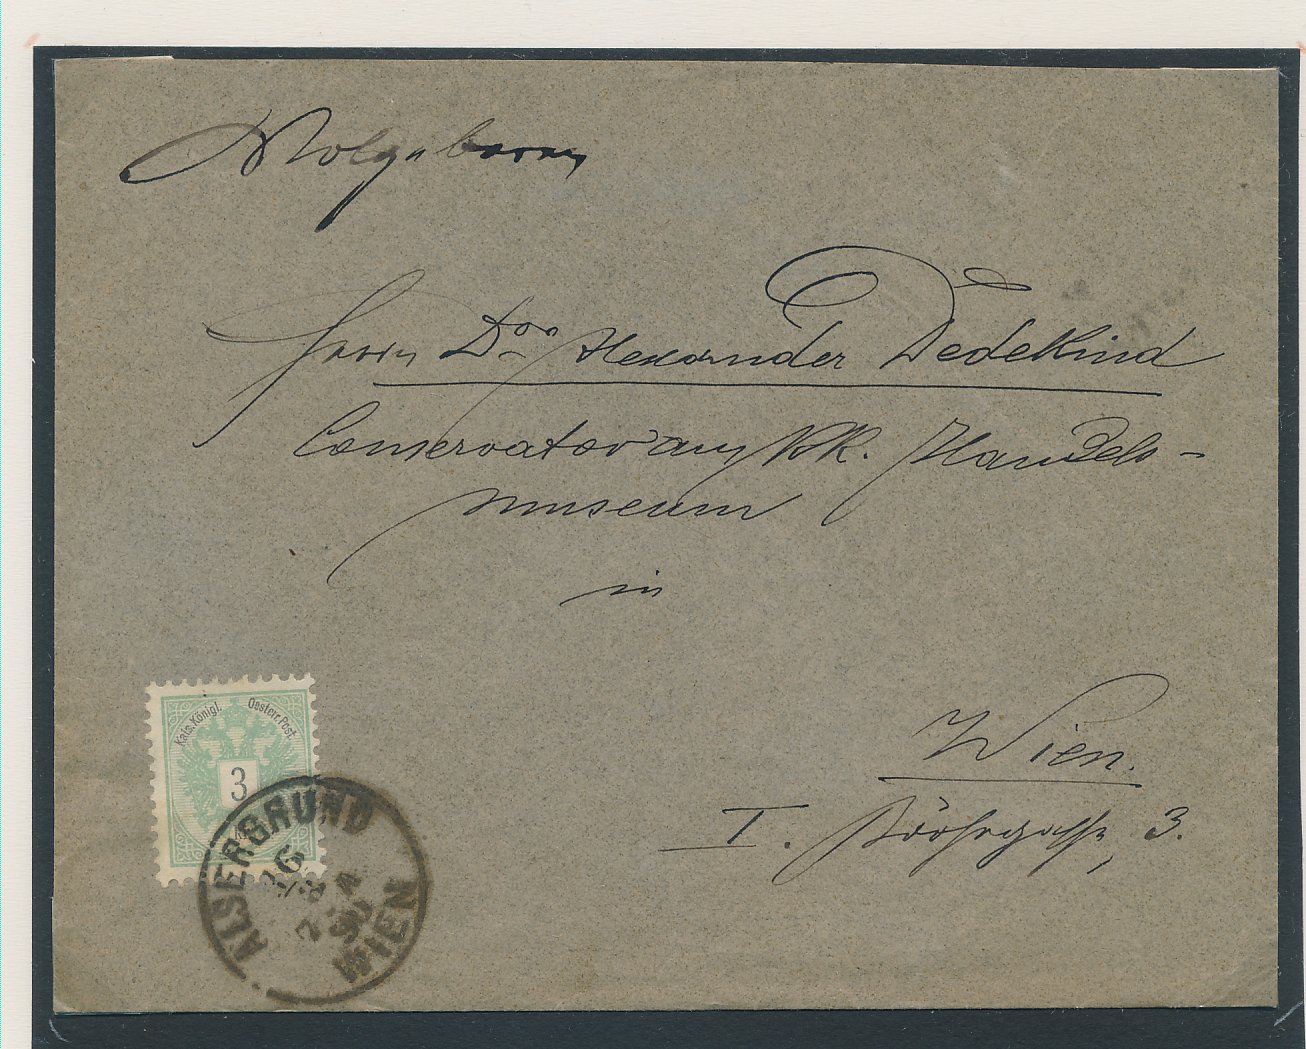 Wolgeboren
Herrn Dor Alexander Dedekind
Conservator am k.k. Handels-
museum
in
Wien.
I. 3.
Kais. Königl. Oesterr. Post.
3
ALSERGRUND
WIEN